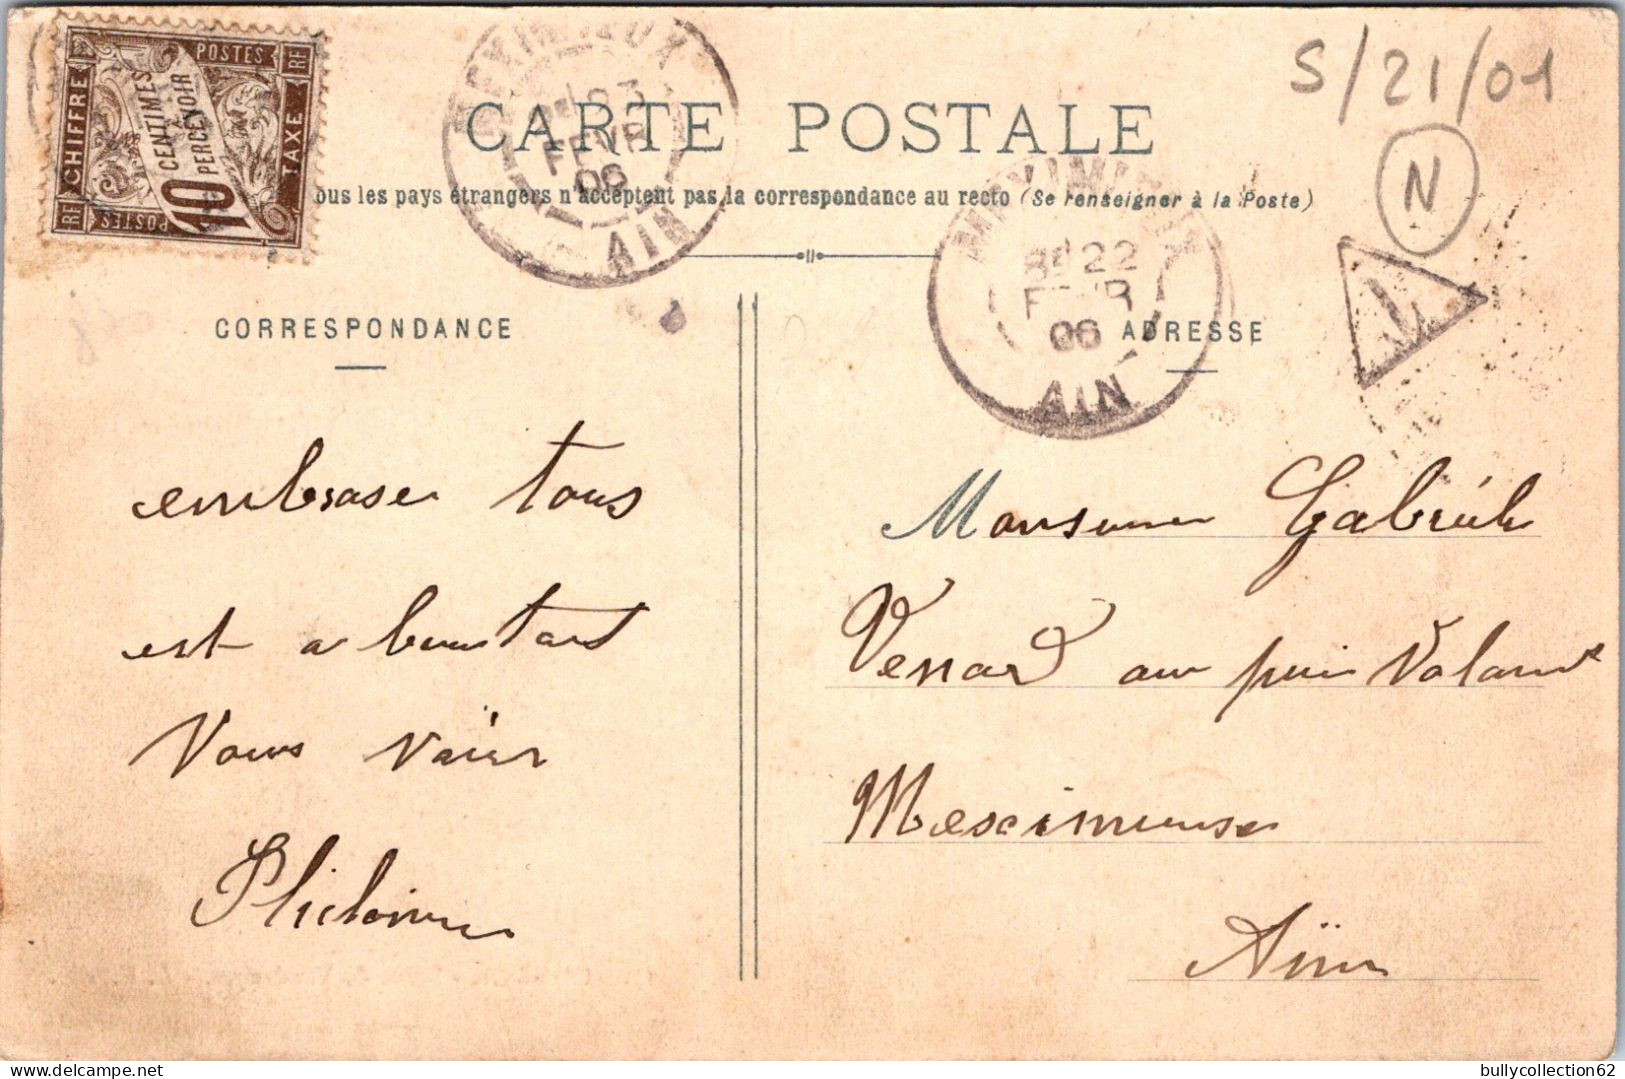 RF POSTES RF
CHIFFRE
10 CENTIMES
PERCEVOIR
TAXE
RF POSTES
MEXIMIEUX
23
FEVR
06
AIN
S/21/01
N
CARTE POSTALE
ous les pays étrangers n'acceptent pas la correspondance au recto (Se renseigner à la Poste)
22
06
AIN
T
CORRESPONDANCE
ADRESSE
embrasse tous
est a bientant
Vous voiir
Philomene
Monsieur Gabriel
Venard au puis Volant
Mesciemeuse
Aiin
bullycollection62